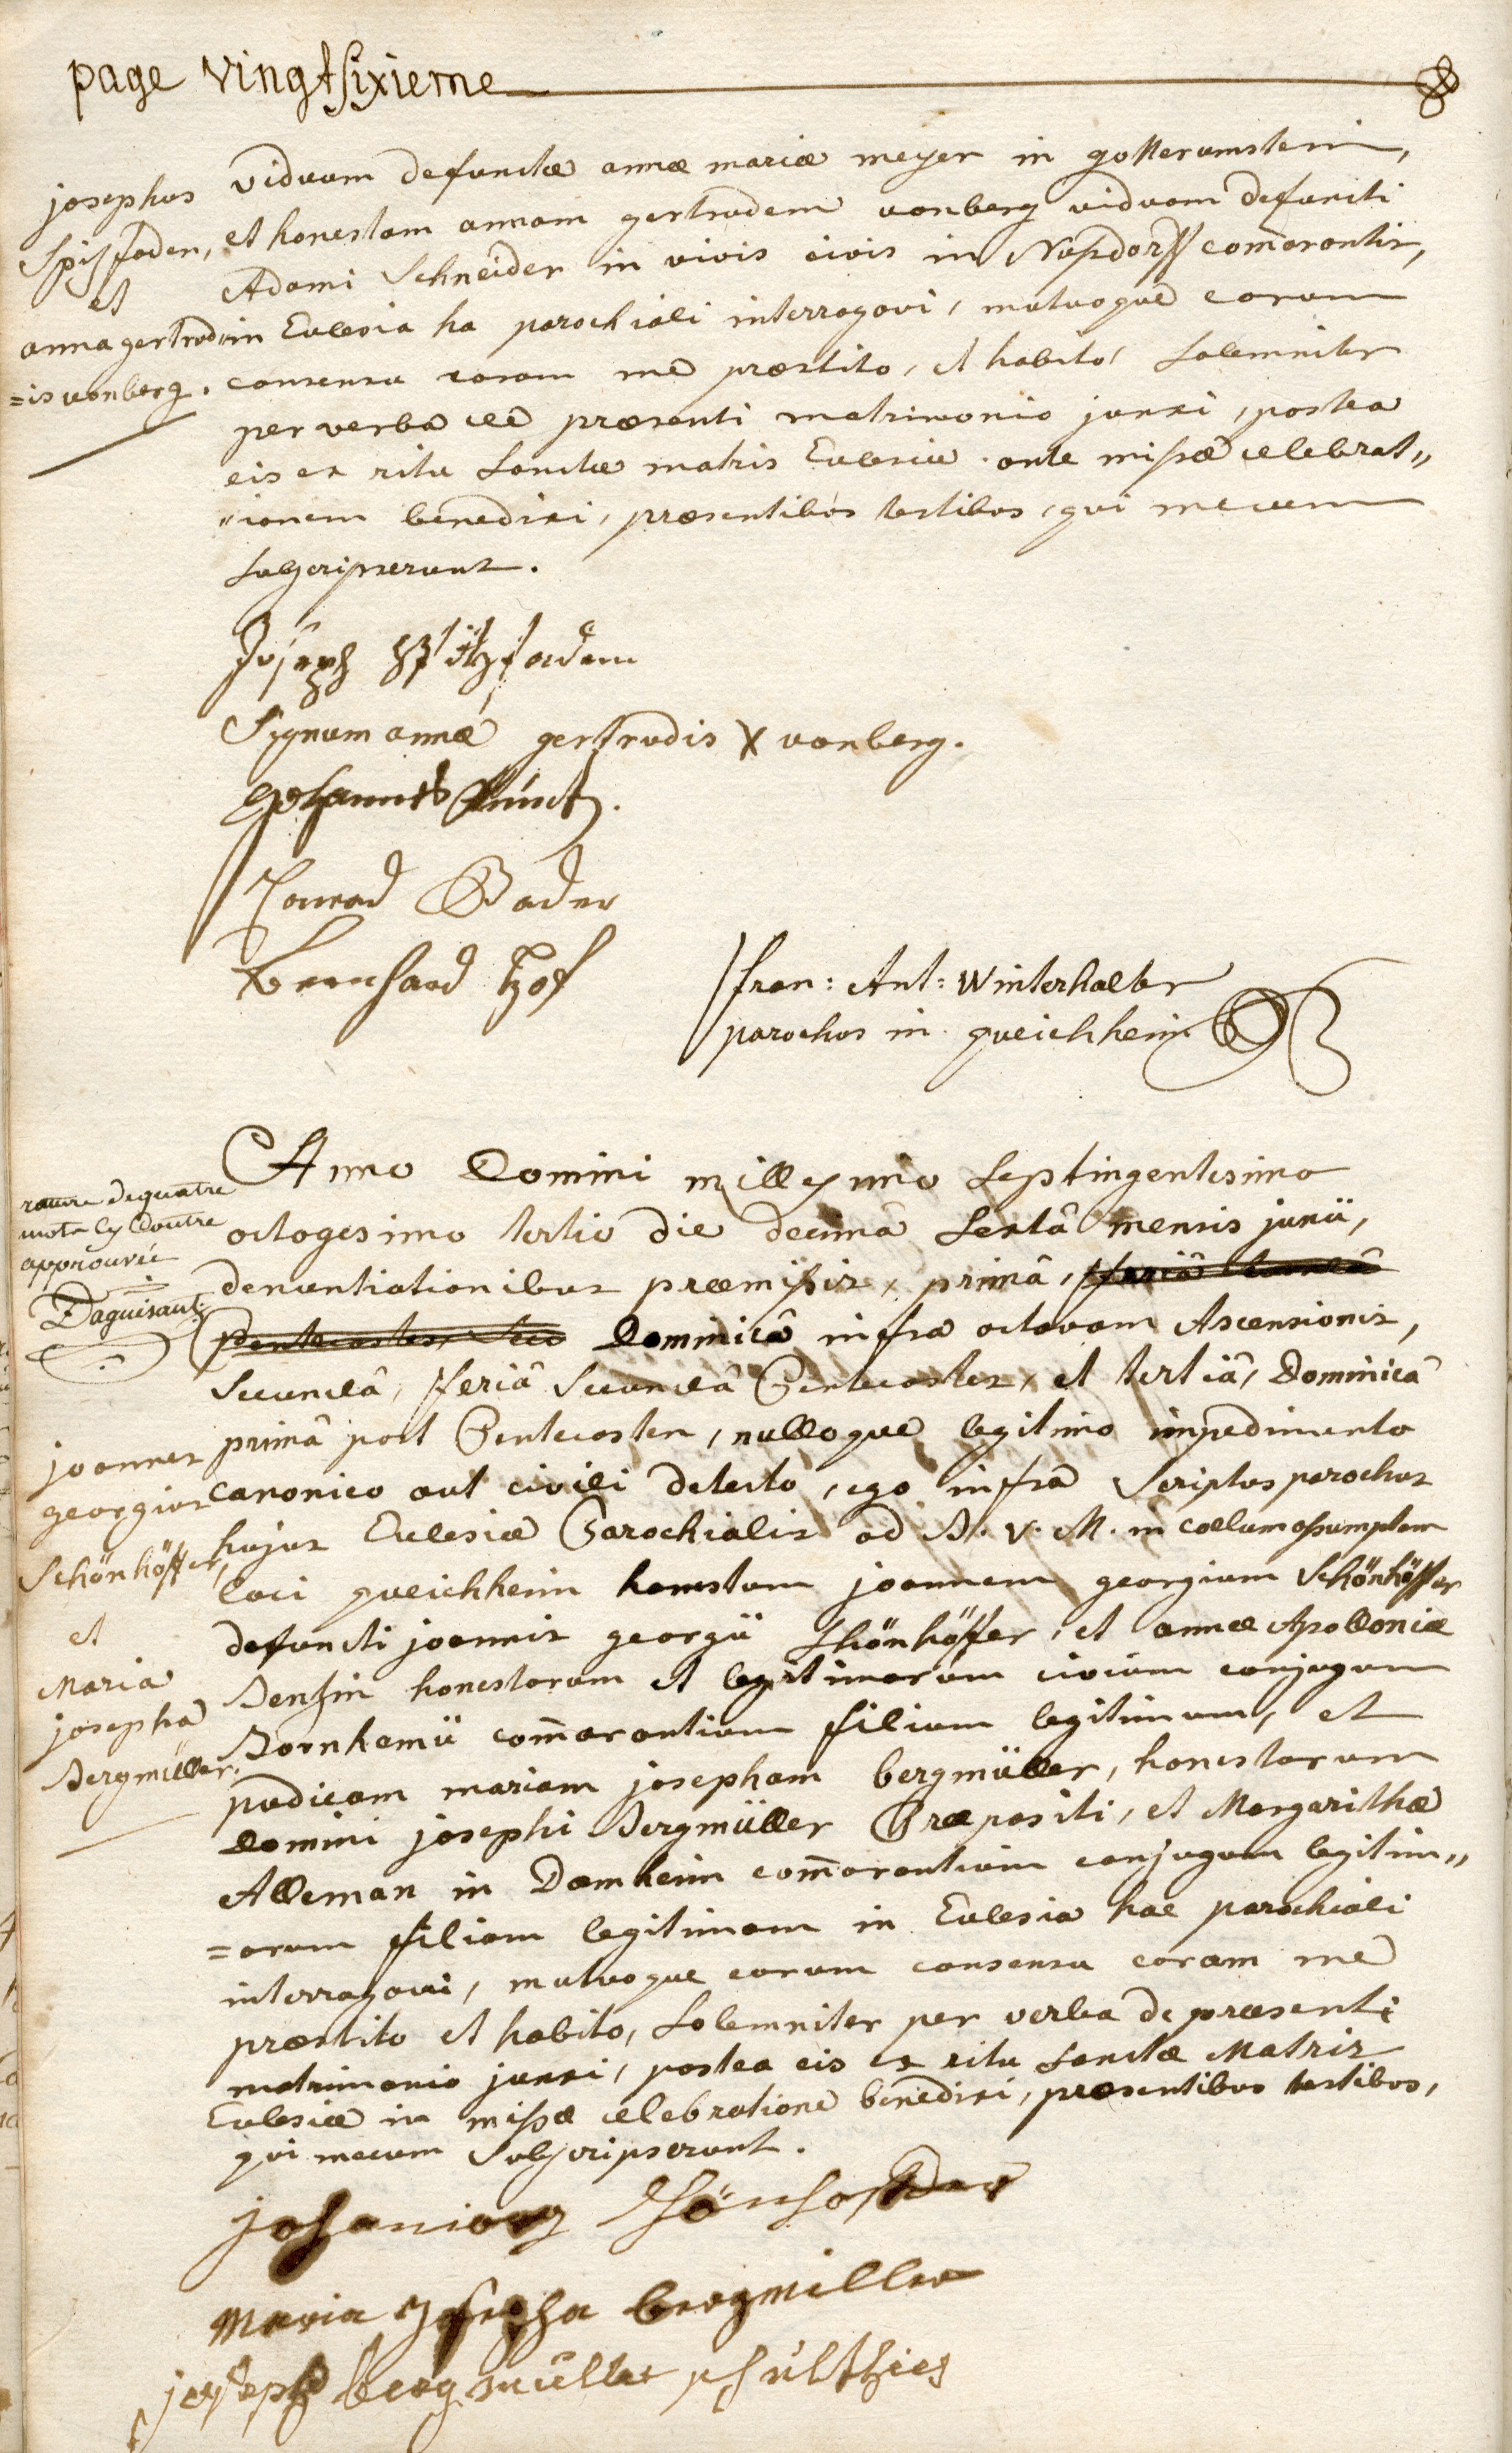 page vingtsixieme
josephus
Spitzfaden,
et
anna gertrud
=is vonberg.
viduum defunctæ annæ mariæ meyer in gotteramstein,
et honestam annam gertrudem vonberg viduam defuncti
Adami Schneider in vivis civis in Nusdorff com̄orantis,
in Ecclesia hac parochiali interrogavi, mutuoque eorum
consensu coram me præstito, et habito, Solemniter
per verba de præsenti matrimonio junxi, postea
eis ex ritu Sanctæ matris Ecclesiæ ante missæ celebrat„
„ionem benedixi, præsentibus testibus, qui mecum
Subscripserunt.
Joseph Spitzfaden
Signum annæ gertrudis X vonberg.
Johannes
Conrad Bader
Bernhard Hof
fran: Ant: Winterhalter
parochus in queichheim
rature de quatre
mots cy Contre
approuvée
Daguisant
Anno Domini millesimo Septingentesimo
octogesimo tertio die decimâ Sextâ mensis junii,
denuntiationibus præmissis, primâ, feriâ secundâ
Pentecostes, Secu Dominicâ infra octavam Ascensionis,
Secundâ, feriâ Secundâ Pentecostes, et tertiâ, Dominicâ
primâ post Pentecosten, nulloque legitimo impedimento
canonico aut civili detecto, ego infra Scriptus parochus
hujus Ecclesiæ Parochialis ad B. V. M. in coelum assumptam
loci queichheim honestum joannem georgium Schönhöffer
defuncti joannis georgii Schönhöffer, et annæ Apolloniæ
Benzin honestorum et legitimorum civium conjugum
Bornhemii com̄orantium filium legitimum, et
pudicam mariam josepham bergmüller, honestorum
Domini josephi Bergmüller Præpositi, et Margarithæ
Alleman in Damheim com̄orantium conjugum legitim„
=orum filiam legitimam in Ecclesia hac parochiali
interrogavi, mutuoque eorum consensu coram me
præstito et habito, Solemniter per verba de præsenti
matrimonio junxi, postea eis ex ritu Sanctæ Matris
Ecclesiæ in missæ celebratione benedixi, præsentibus testibus,
qui mecum Subscripserunt.
joannes
georgius
Schönhöffer,
et
Maria
josepha
Bergmüller.
johaniorg
Maria Josepha bergmiller
joseph bergmüller schultheis